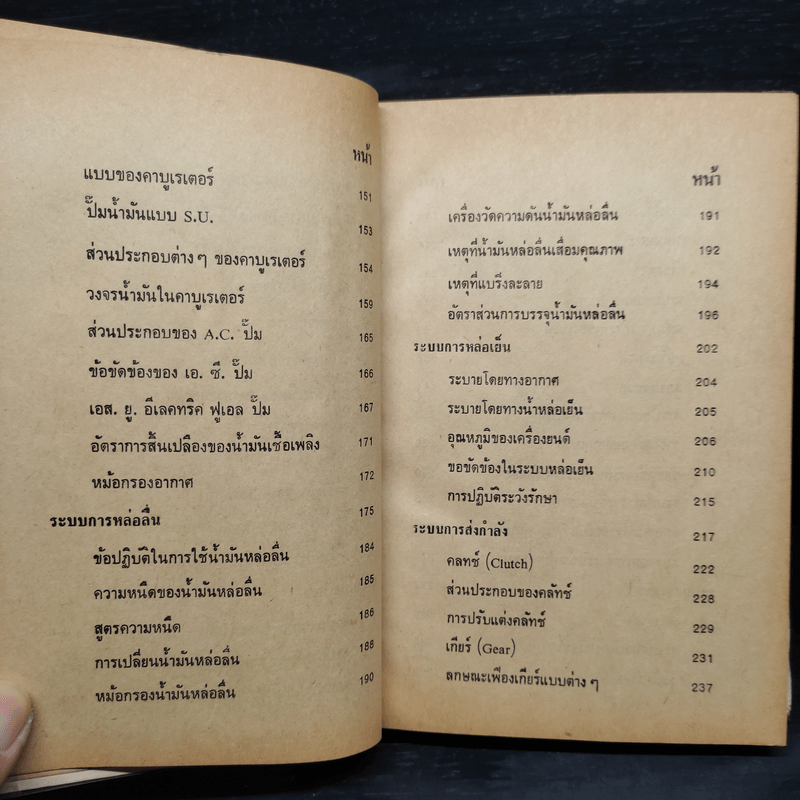 หน้า
แบบของคาบูเรเตอร์ 151
ปั๊มน้ำมันแบบ S.U. 153
ส่วนประกอบต่างๆ ของคาบูเรเตอร์ 154
วงจรน้ำมันในคาบูเรเตอร์ 159
ส่วนประกอบของ A.C. ปั๊ม 165
ข้อขัดข้องของ เอ. ซี. ปั๊ม 166
เอส. ยู. อีเลคทริค ฟูเอล ปั๊ม 167
อัตราการสิ้นเปลืองของน้ำมันเชื้อเพลิง 171
หม้อกรองอากาศ 172
ระบบการหล่อลื่น 175
ข้อปฏิบัติในการใช้น้ำมันหล่อลื่น 184
ความหนืดของน้ำมันหล่อลื่น 185
สูตรความหนืด 186
การเปลี่ยนน้ำมันหล่อลื่น 188
หม้อกรองน้ำมันหล่อลื่น 190
หน้า
เครื่องวัดความดันน้ำมันหล่อลื่น 191
เหตุที่น้ำมันหล่อลื่นเสื่อมคุณภาพ 192
เหตุที่แบริ่งละลาย 194
อัตราส่วนการบรรจุน้ำมันหล่อลื่น 196
ระบบการหล่อเย็น 202
ระบายโดยทางอากาศ 204
ระบายโดยทางน้ำหล่อเย็น 205
อุณหภูมิของเครื่องยนต์ 206
ขอขัดข้องในระบบหล่อเย็น 210
การปฏิบัติระวังรักษา 215
ระบบการส่งกำลัง 217
คลทช์ (Clutch) 222
ส่วนประกอบของคลัทช์ 228
การปรับแต่งคลัทช์ 229
เกียร์ (Gear) 231
ลักษณะเฟืองเกียร์แบบต่าง ๆ 237